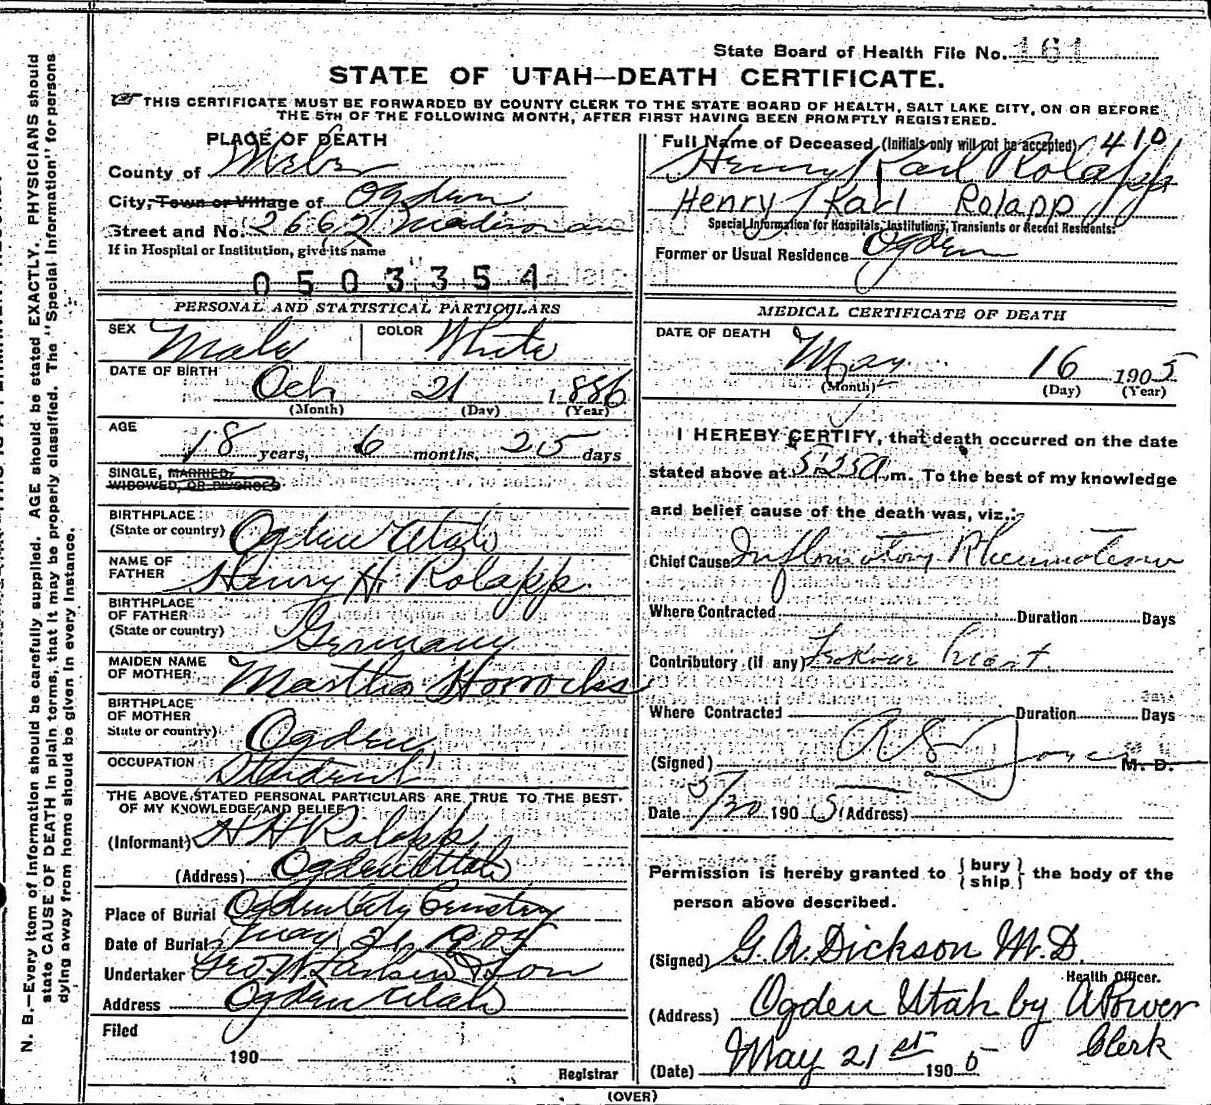 State Board of Health File No. 161
STATE OF UTAH—DEATH CERTIFICATE.
THIS CERTIFICATE MUST BE FORWARDED BY COUNTY CLERK TO THE STATE BOARD OF HEALTH, SALT LAKE CITY, ON OR BEFORE
THE 5TH OF THE FOLLOWING MONTH, AFTER FIRST HAVING BEEN PROMPTLY REGISTERED.
PLACE OF DEATH
County of Weber
City, Town or Village of Ogden
Street and No. 2662 Madison av
If in Hospital or Institution, give its name
0503354
PERSONAL AND STATISTICAL PARTICULARS
SEX Male COLOR White
DATE OF BIRTH
Oct 21 1886
(Month) (Day) (Year)
AGE
18 years, 6 months, 25 days
SINGLE, MARRIED,
WIDOWED, OR DIVORCED
BIRTHPLACE
(State or country) Ogden Utah
NAME OF
FATHER Henry H. Rolapp.
BIRTHPLACE
OF FATHER
(State or country) Germany
MAIDEN NAME
OF MOTHER Martha Horrocks
BIRTHPLACE
OF MOTHER
State or country) Ogden,
OCCUPATION Student
THE ABOVE STATED PERSONAL PARTICULARS ARE TRUE TO THE BEST
OF MY KNOWLEDGE AND BELIEF
(Informant) H H Rolapp
(Address) Ogden Utah
Place of Burial Ogden City Cemetery
Date of Burial May 21, 1905
Undertaker Geo. W. Larkin & Son
Address Ogden Utah
Filed
190
Registrar
Full Name of Deceased (Initials only will not be accepted) 410
Henry Karl Rolapp
Henry Karl Rolapp
Special Information for Hospitals, Institutions, Transients or Recent Residents:
Former or Usual Residence Ogden
MEDICAL CERTIFICATE OF DEATH
DATE OF DEATH
May 16 1905
(Month) (Day) (Year)
I HEREBY CERTIFY, that death occurred on the date
stated above at 5:25 A.m. To the best of my knowledge
and belief cause of the death was, viz.:
Chief Cause Inflamatory Rheumatism
Where Contracted Duration Days
Contributory (if any) heart
Where Contracted Duration Days
(Signed) M. D.
Date 5/20 1905 (Address)
Permission is hereby granted to {bury
ship} the body of the
person above described.
(Signed) G. A. Dickson M. D.
Health Officer.
(Address) Ogden Utah by A Power
Clerk
(Date) May 21st 1905
(OVER)
N. B.—Every item of information should be carefully supplied. AGE should be stated EXACTLY. PHYSICIANS should
state CAUSE OF DEATH in plain terms, that it may be properly classified. The "Special Information" for persons
dying away from home should be given in every instance.